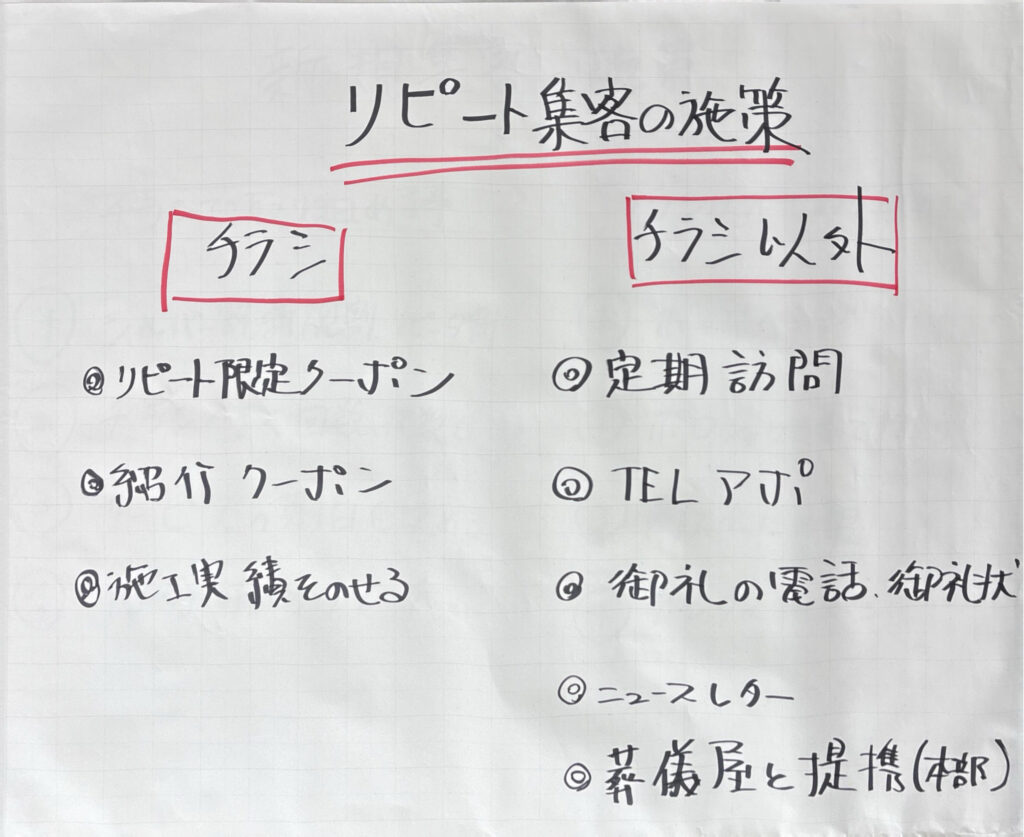 リピート集客の施策
チラシ
◎リピート限定クーポン
◎紹介クーポン
◎施工実績をのせる
チラシ以外
◎定期訪問
◎TELアポ
◎御礼の電話、御礼状
◎ニュースレター
◎葬儀屋と提携(本部)